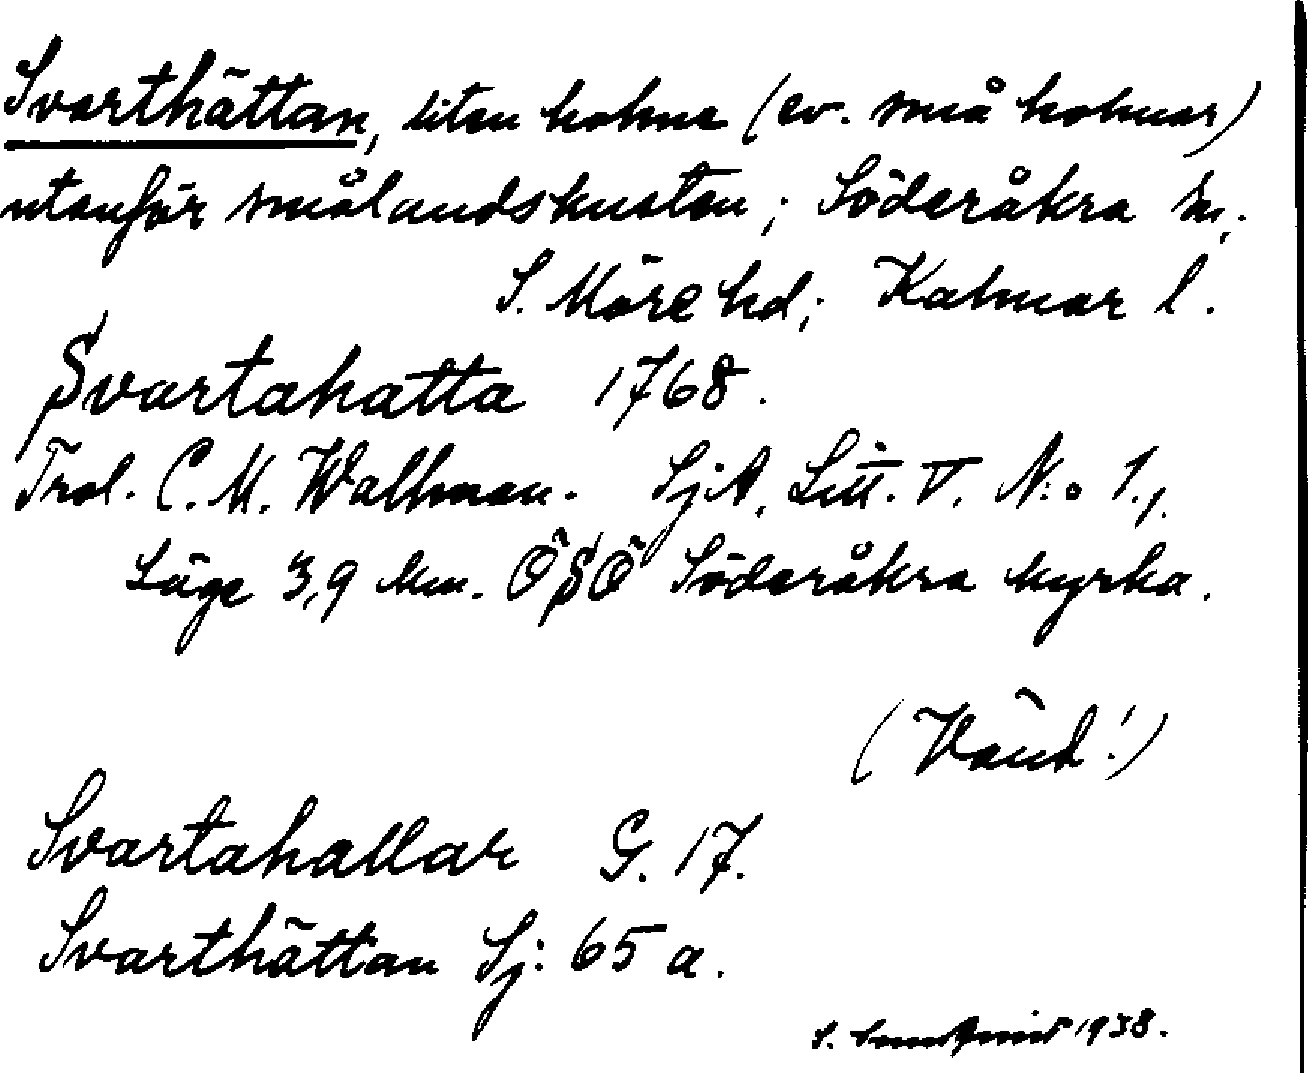 Svarthättan, liten holme (ev. små holmar)
utanför smålandskusten; Söderåkra sn,.
S. Möre hd; Kalmar l.
Svartahatta 1768.
Trol. C. M. Wallman. SjA, Litt. V. N:o 1.,
Läge 3,9 km. ÖSÖ Söderåkra kyrka.
(Vänd!)
Svartahallar G. 17.
Svarthättan Sj: 65 a.
S. 1938.